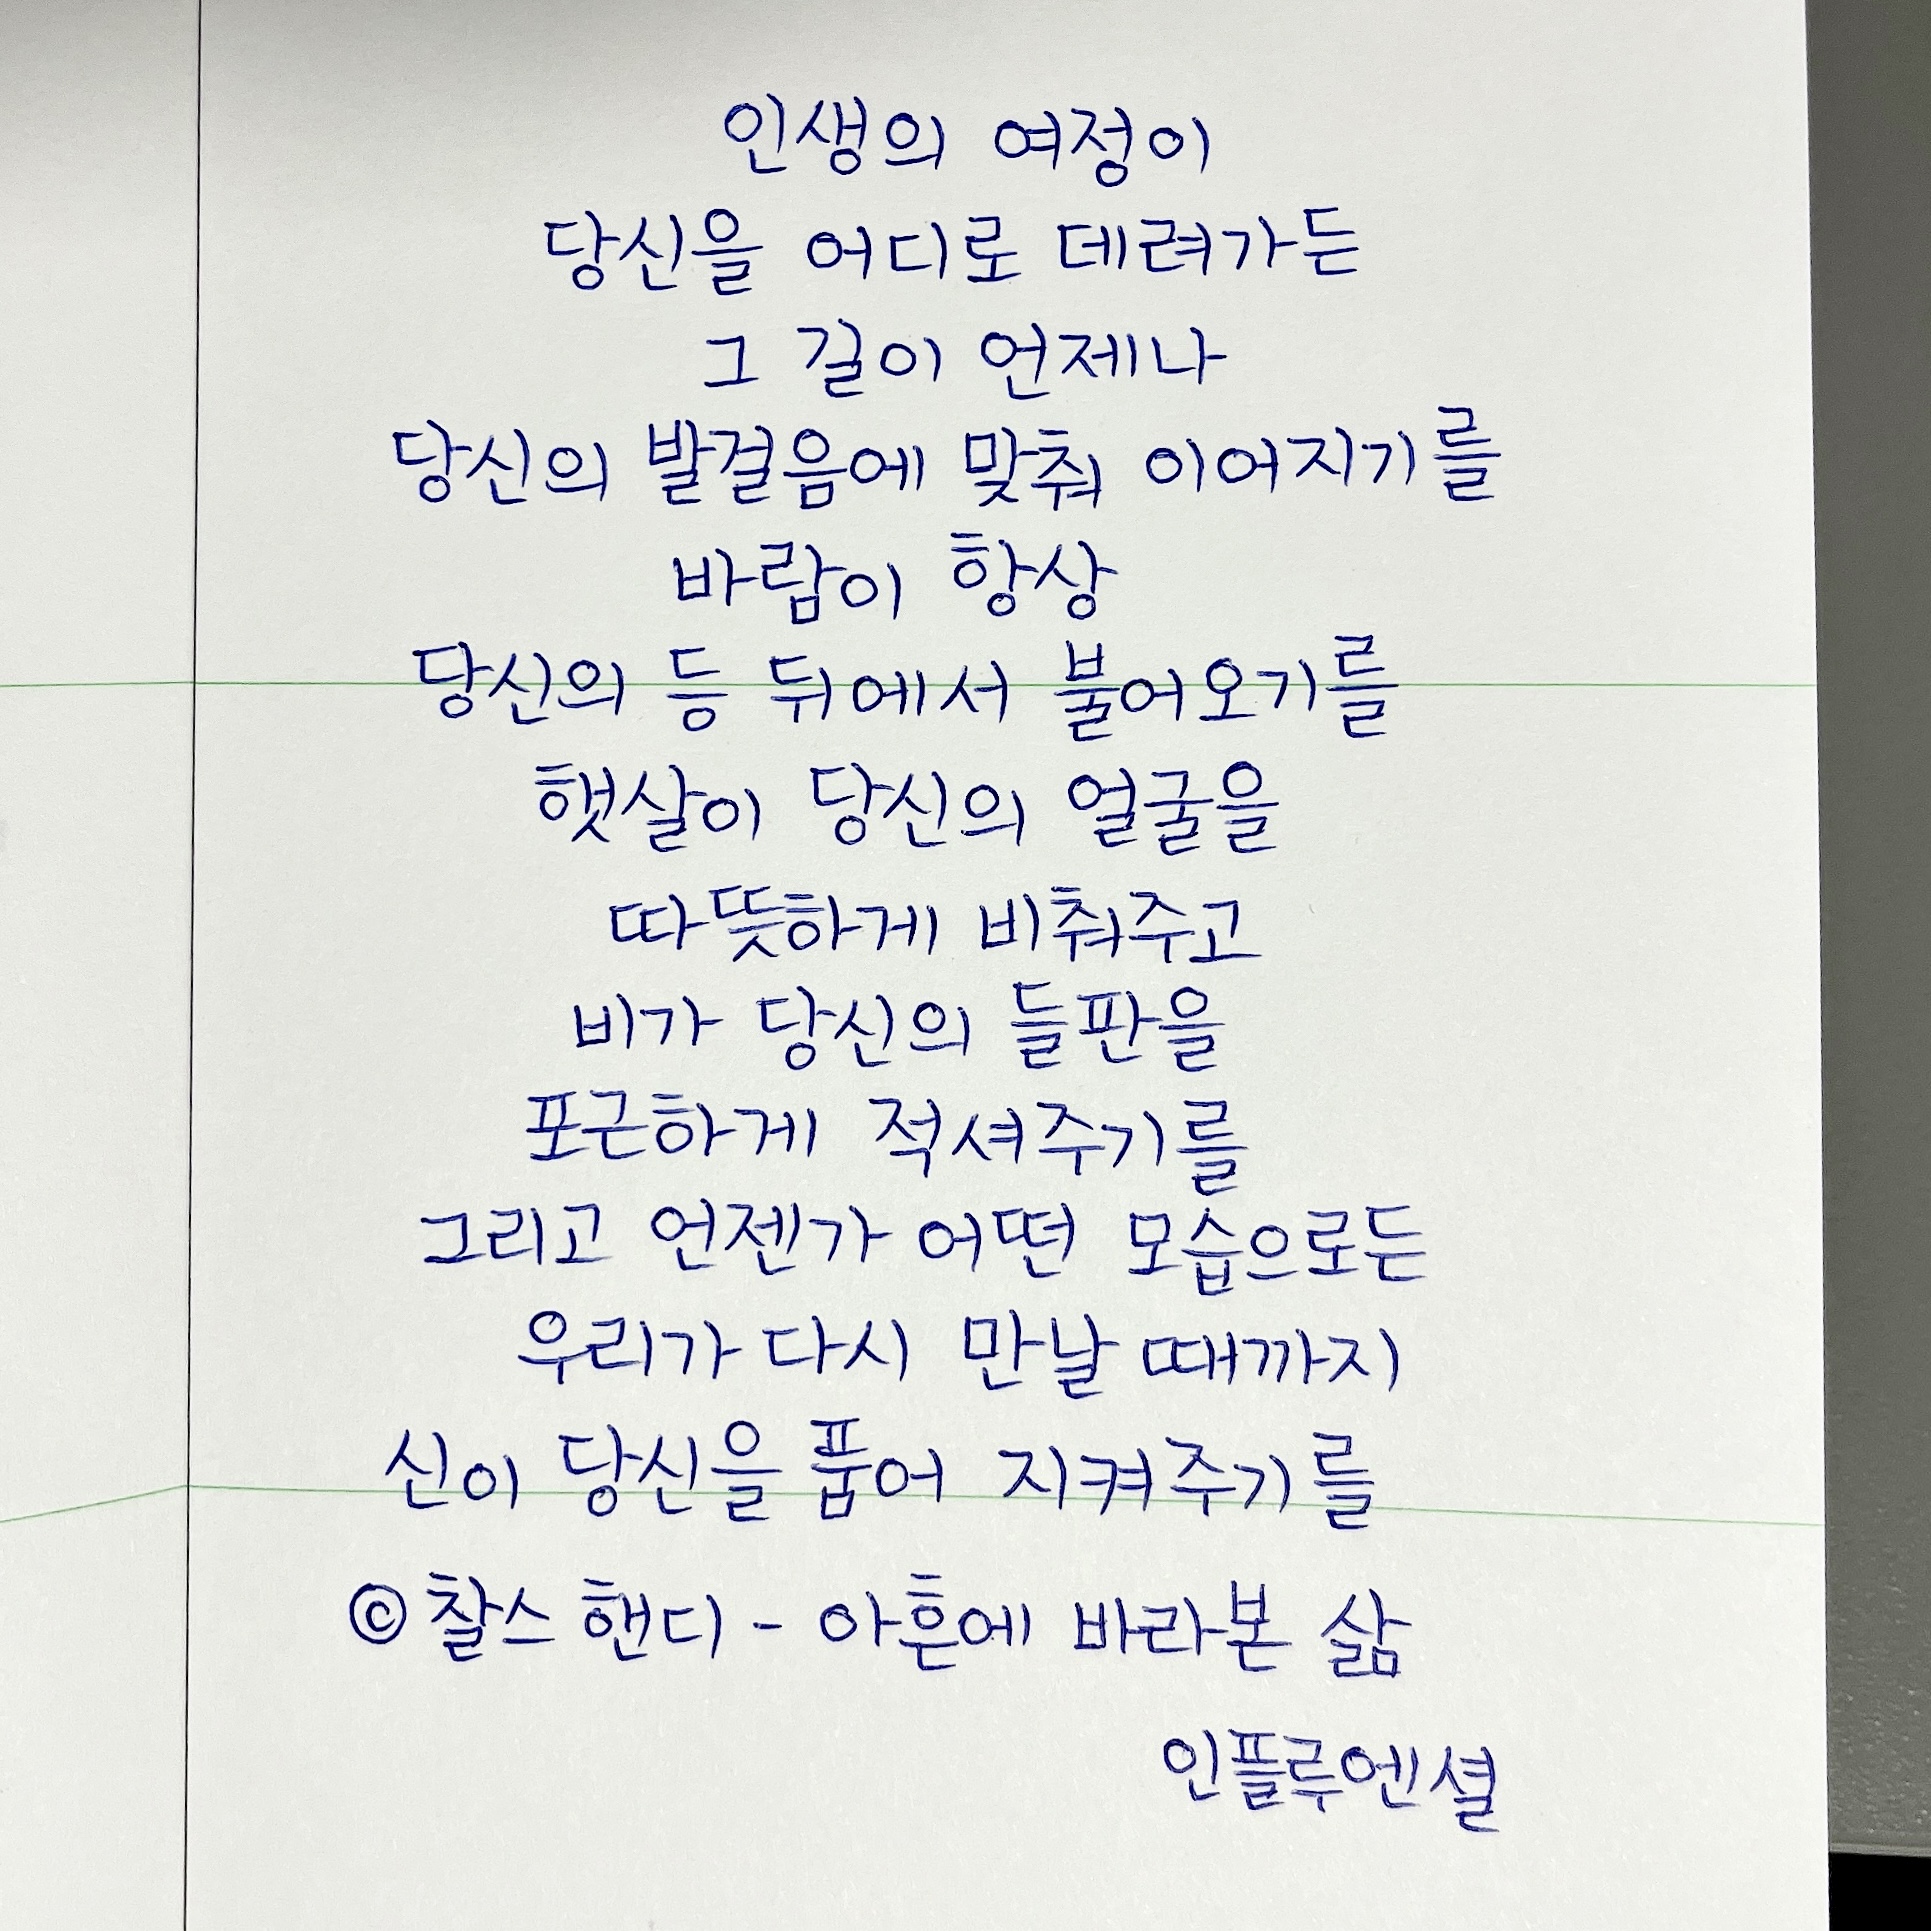 인생의 여정이
당신을 어디로 데려가든
그 길이 언제나
당신의 발걸음에 맞춰 이어지기를
바람이 항상
당신의 등 뒤에서 불어오기를
햇살이 당신의 얼굴을
따뜻하게 비춰주고
비가 당신의 들판을
포근하게 적셔주기를
그리고 언젠가 어떤 모습으로든
우리가 다시 만날 때까지
신이 당신을 품어 지켜주기를
© 찰스 핸디 - 아흔에 바라본 삶
인플루엔셜